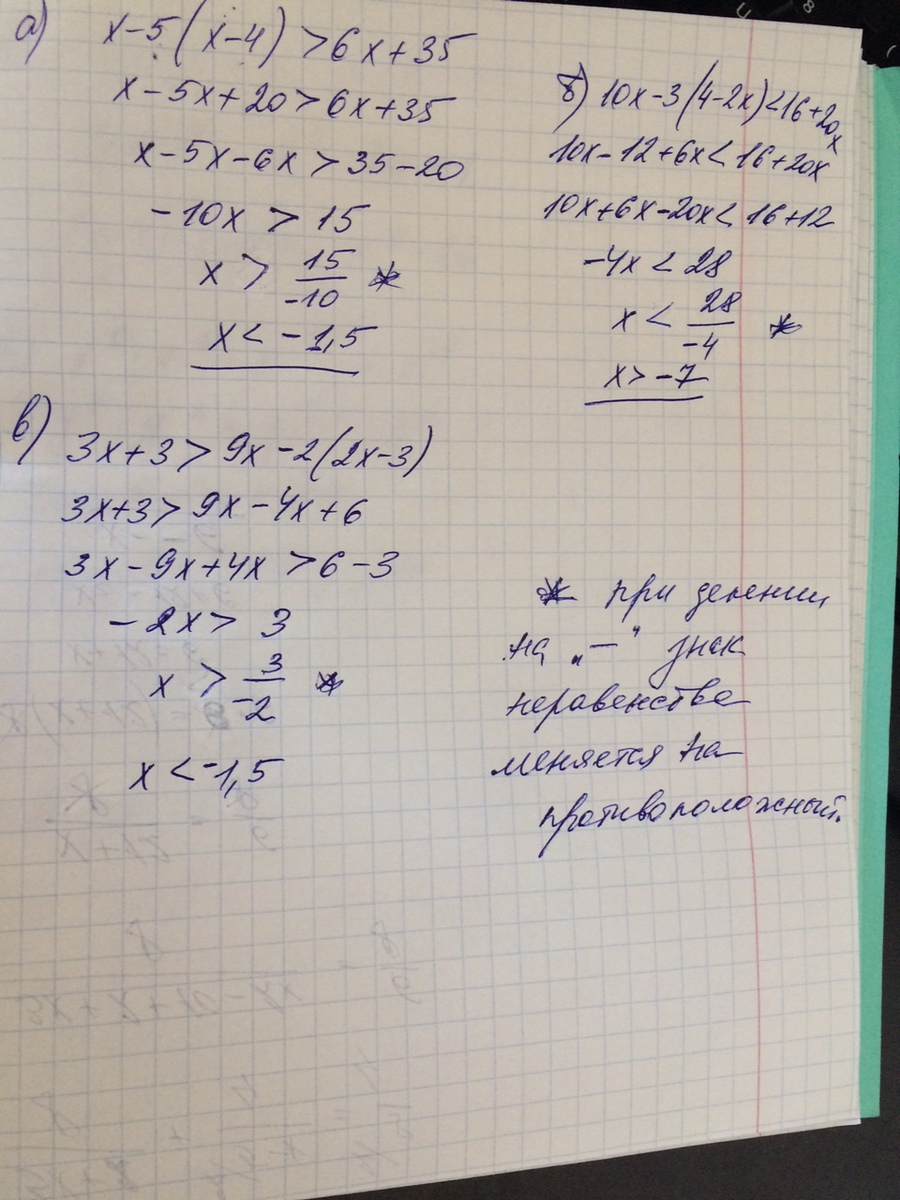 а) x-5(x-4)>6x+35
x-5x+20>6x+35
x-5x-6x>35-20
-10x > 15
x > 15/-10 *
x< -1,5
б) 10x-3(4-2x)<16+20x
10x-12+6x<16+20x
10x+6x-20x<16+12
-4x < 28
x < 28/-4 *
x> -7
в) 3x+3>9x-2(2x-3)
3x+3>9x-4x+6
3x-9x+4x>6-3
-2x> 3
x > 3/-2 *
x <-1,5
* при делении
на „—“ знак
неравенства
меняется на
противоположный.